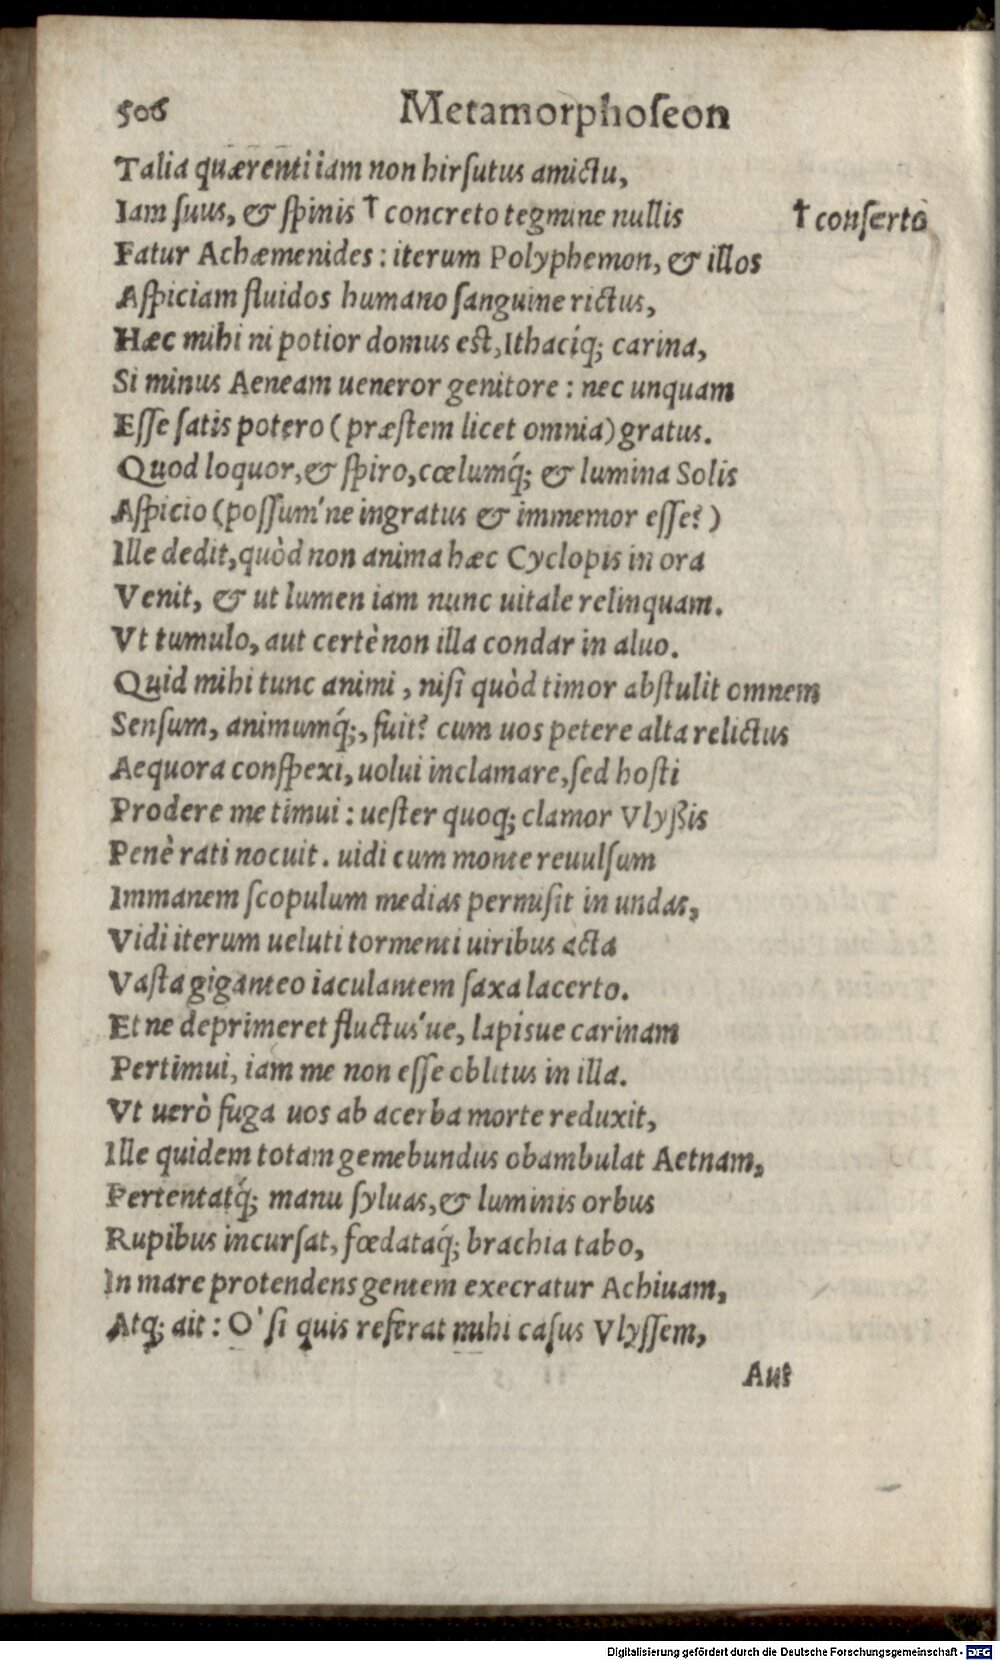 506 Metamorphoſeon
Talia quærenti iam non hirſutus amictu,
Iam ſuus, & ſpinis † concreto tegmine nullis † conſerto
Fatur Achæmenides: iterum Polyphemon, & illos
Aſpiciam fluidos humano ſanguine rictus,
Hæc mihi ni potior domus eſt, Ithaciq́; carina,
Si minus Aeneam ueneror genitore: nec unquam
Eſſe ſatis potero (præſtem licet omnia) gratus.
Quod loquor, & ſpiro, cœlumq́; & lumina Solis
Aſpicio (poſſum'ne ingratus & immemor eſſe?)
Ille dedit, quòd non anima hæc Cyclopis in ora
Venit, & ut lumen iam nunc uitale relinquam.
Vt tumulo, aut certè non illa condar in aluo.
Quid mihi tunc animi, niſi quòd timor abſtulit omnem
Senſum, animumq́;, fuit? cum uos petere alta relictus
Aequora conſpexi, uolui inclamare, ſed hoſti
Prodere me timui: ueſter quoq; clamor Vlyßis
Penè rati nocuit. uidi cum monte reuulſum
Immanem ſcopulum medias permiſit in undas,
Vidi iterum ueluti tormenti uiribus acta
Vaſta giganteo iaculantem ſaxa lacerto.
Et ne deprimeret fluctus'ue, lapisue carinam
Pertimui, iam me non eſſe oblitus in illa.
Vt uerò fuga uos ab acerba morte reduxit,
Ille quidem totam gemebundus obambulat Aetnam,
Pertentatq́; manu ſyluas, & luminis orbus
Rupibus incurſat, fœdataq́; brachia tabo,
In mare protendens gentem execratur Achiuam,
Atq; ait: O' ſi quis referat mihi caſus Vlyſſem,
Aut
Digitalisierung gefördert durch die Deutsche Forschungsgemeinschaft - DFG